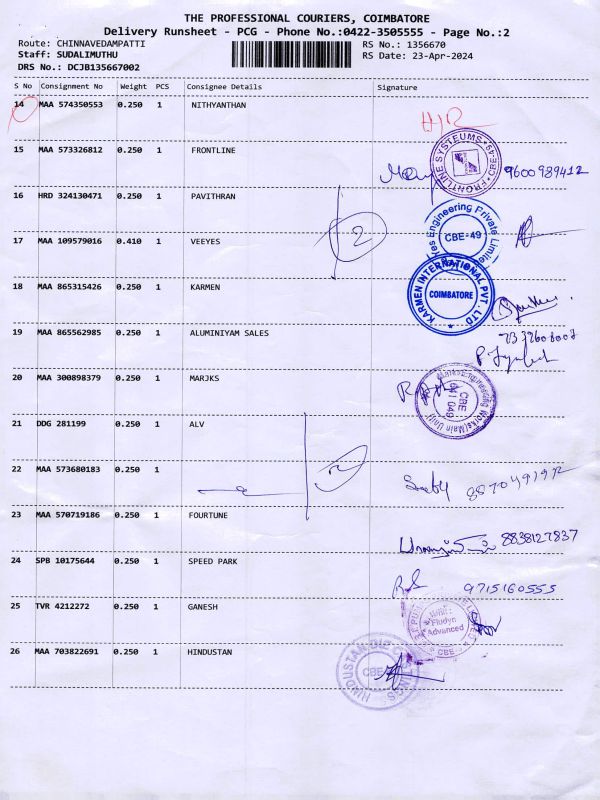 THE PROFESSIONAL COURIERS, COIMBATORE
Delivery Runsheet - PCG - Phone No.:0422-3505555 - Page No.:2
Route: CHINNAVEDAMPATTI RS No.: 1356670
Staff: SUDALIMUTHU RS Date: 23-Apr-2024
DRS No.: DCJB135667002
S No Consignment No Weight PCS Consignee Details Signature
14 MAA 574350553 0.250 1 NITHYANTHAN
15 MAA 573326812 0.250 1 FRONTLINE
FRONTLINE SYSTEUMS CBE-49
9600989412
16 HRD 324130471 0.250 1 PAVITHRAN
2
17 MAA 109579016 0.410 1 VEEYES
Engineering Private CBE-49
18 MAA 865315426 0.250 1 KARMEN
KARMEN INTERNATIONAL PVT. LTD COIMBATORE
19 MAA 865562985 0.250 1 ALUMINIYAM SALES
20 MAA 300898379 0.250 1 MARJKS
Engineering Works(Main Unit) CBE 641 049
21 DDG 281199 0.250 1 ALV
22 MAA 573680183 0.250 1
23 MAA 570719186 0.250 1 FOURTUNE
8838127837
24 SPB 10175644 0.250 1 SPEED PARK
9715160555
25 TVR 4212272 0.250 1 GANESH
Fludyn Advanced CBE
26 MAA 703822691 0.250 1 HINDUSTAN
HINDUSTAN DIE CASTINGS CBE